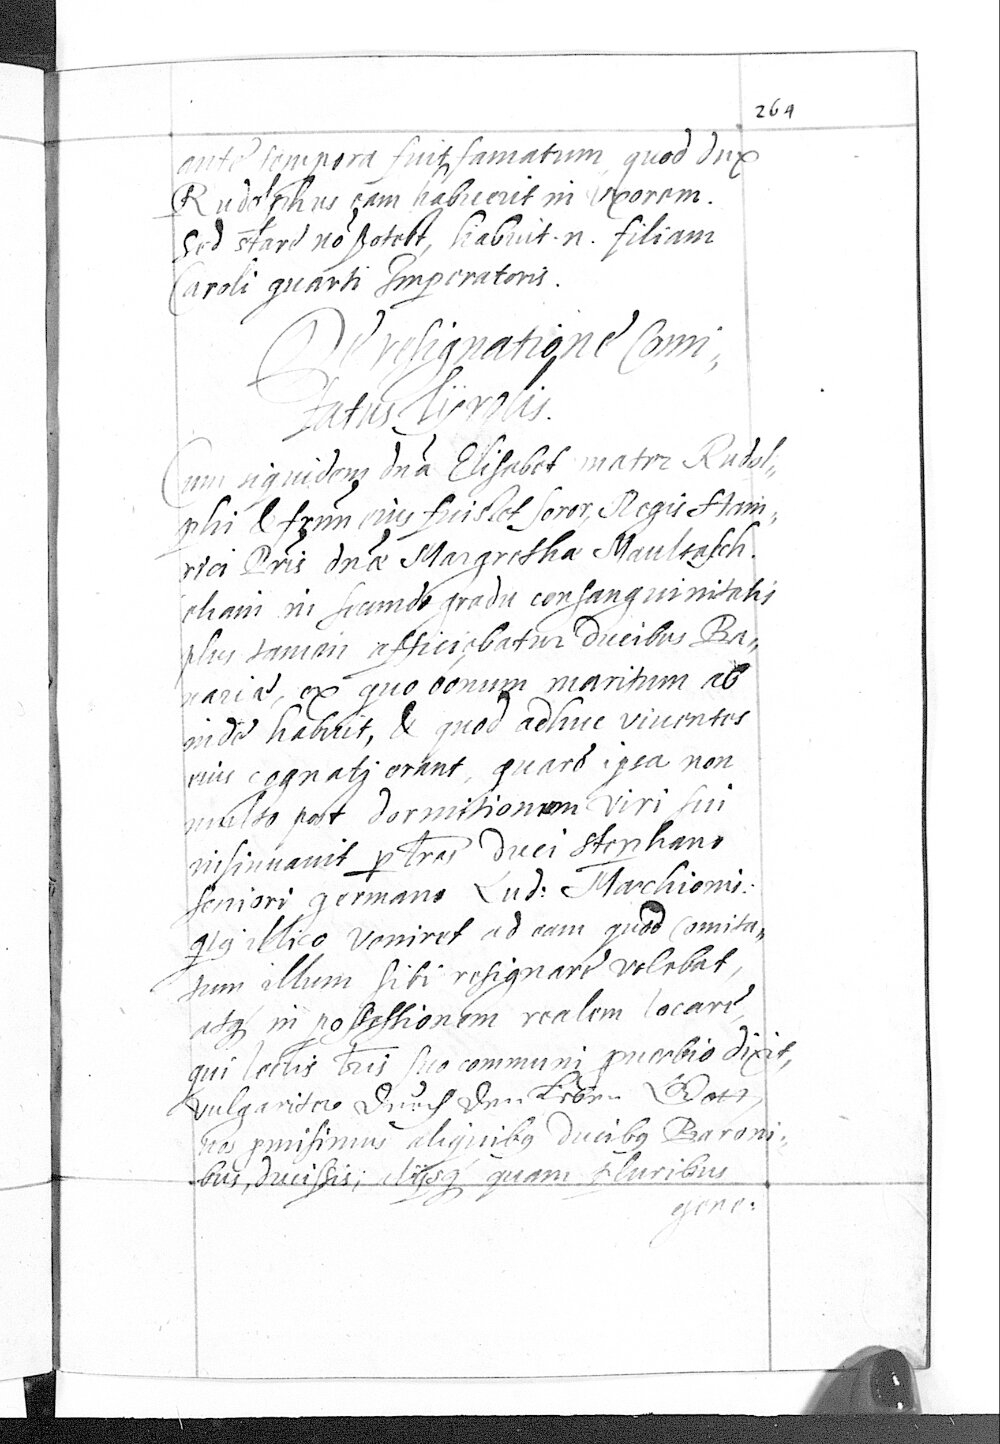 264
ante tempora fuit famatum, quod dux
Rudolphus eam habuerit in uxorem.
Sed stare nō potest, habuit .n. filiam
Caroli quarti Imperatoris.
De resignatione Comi„
tatus Tÿrolis.
Cum siquidem dn̄a Elisabet mater Rudol„
phi & frūm eius fuisset soror, Regis Hein„
rici Pr̄is dn̄æ Margrethæ Maultasch.
etiam in secundo gradu consanguinitatis
plus tamen afficiebatur Ducibus Ba„
variæ, ex quo bonum maritum ab
inde habuit, & quod adhuc viventes
eius cognatj erant, quare ipsa non
multo post dormitionem viri sui
insinuavit p lr̄as Duci Stephano
seniori germano Lud: Marchionis:
qd illico veniret ad eam quod Comita„
tum illum sibi resignare volebat,
atq in possessionem realem locare,
qui lectis lr̄is suo communi pverbio dixit,
vulgariter Durch den lieben Gott,
nos pmisimus aliquibq Ducibq Baroni„
bus, ducissis; alijsq quam pluribus
gene: